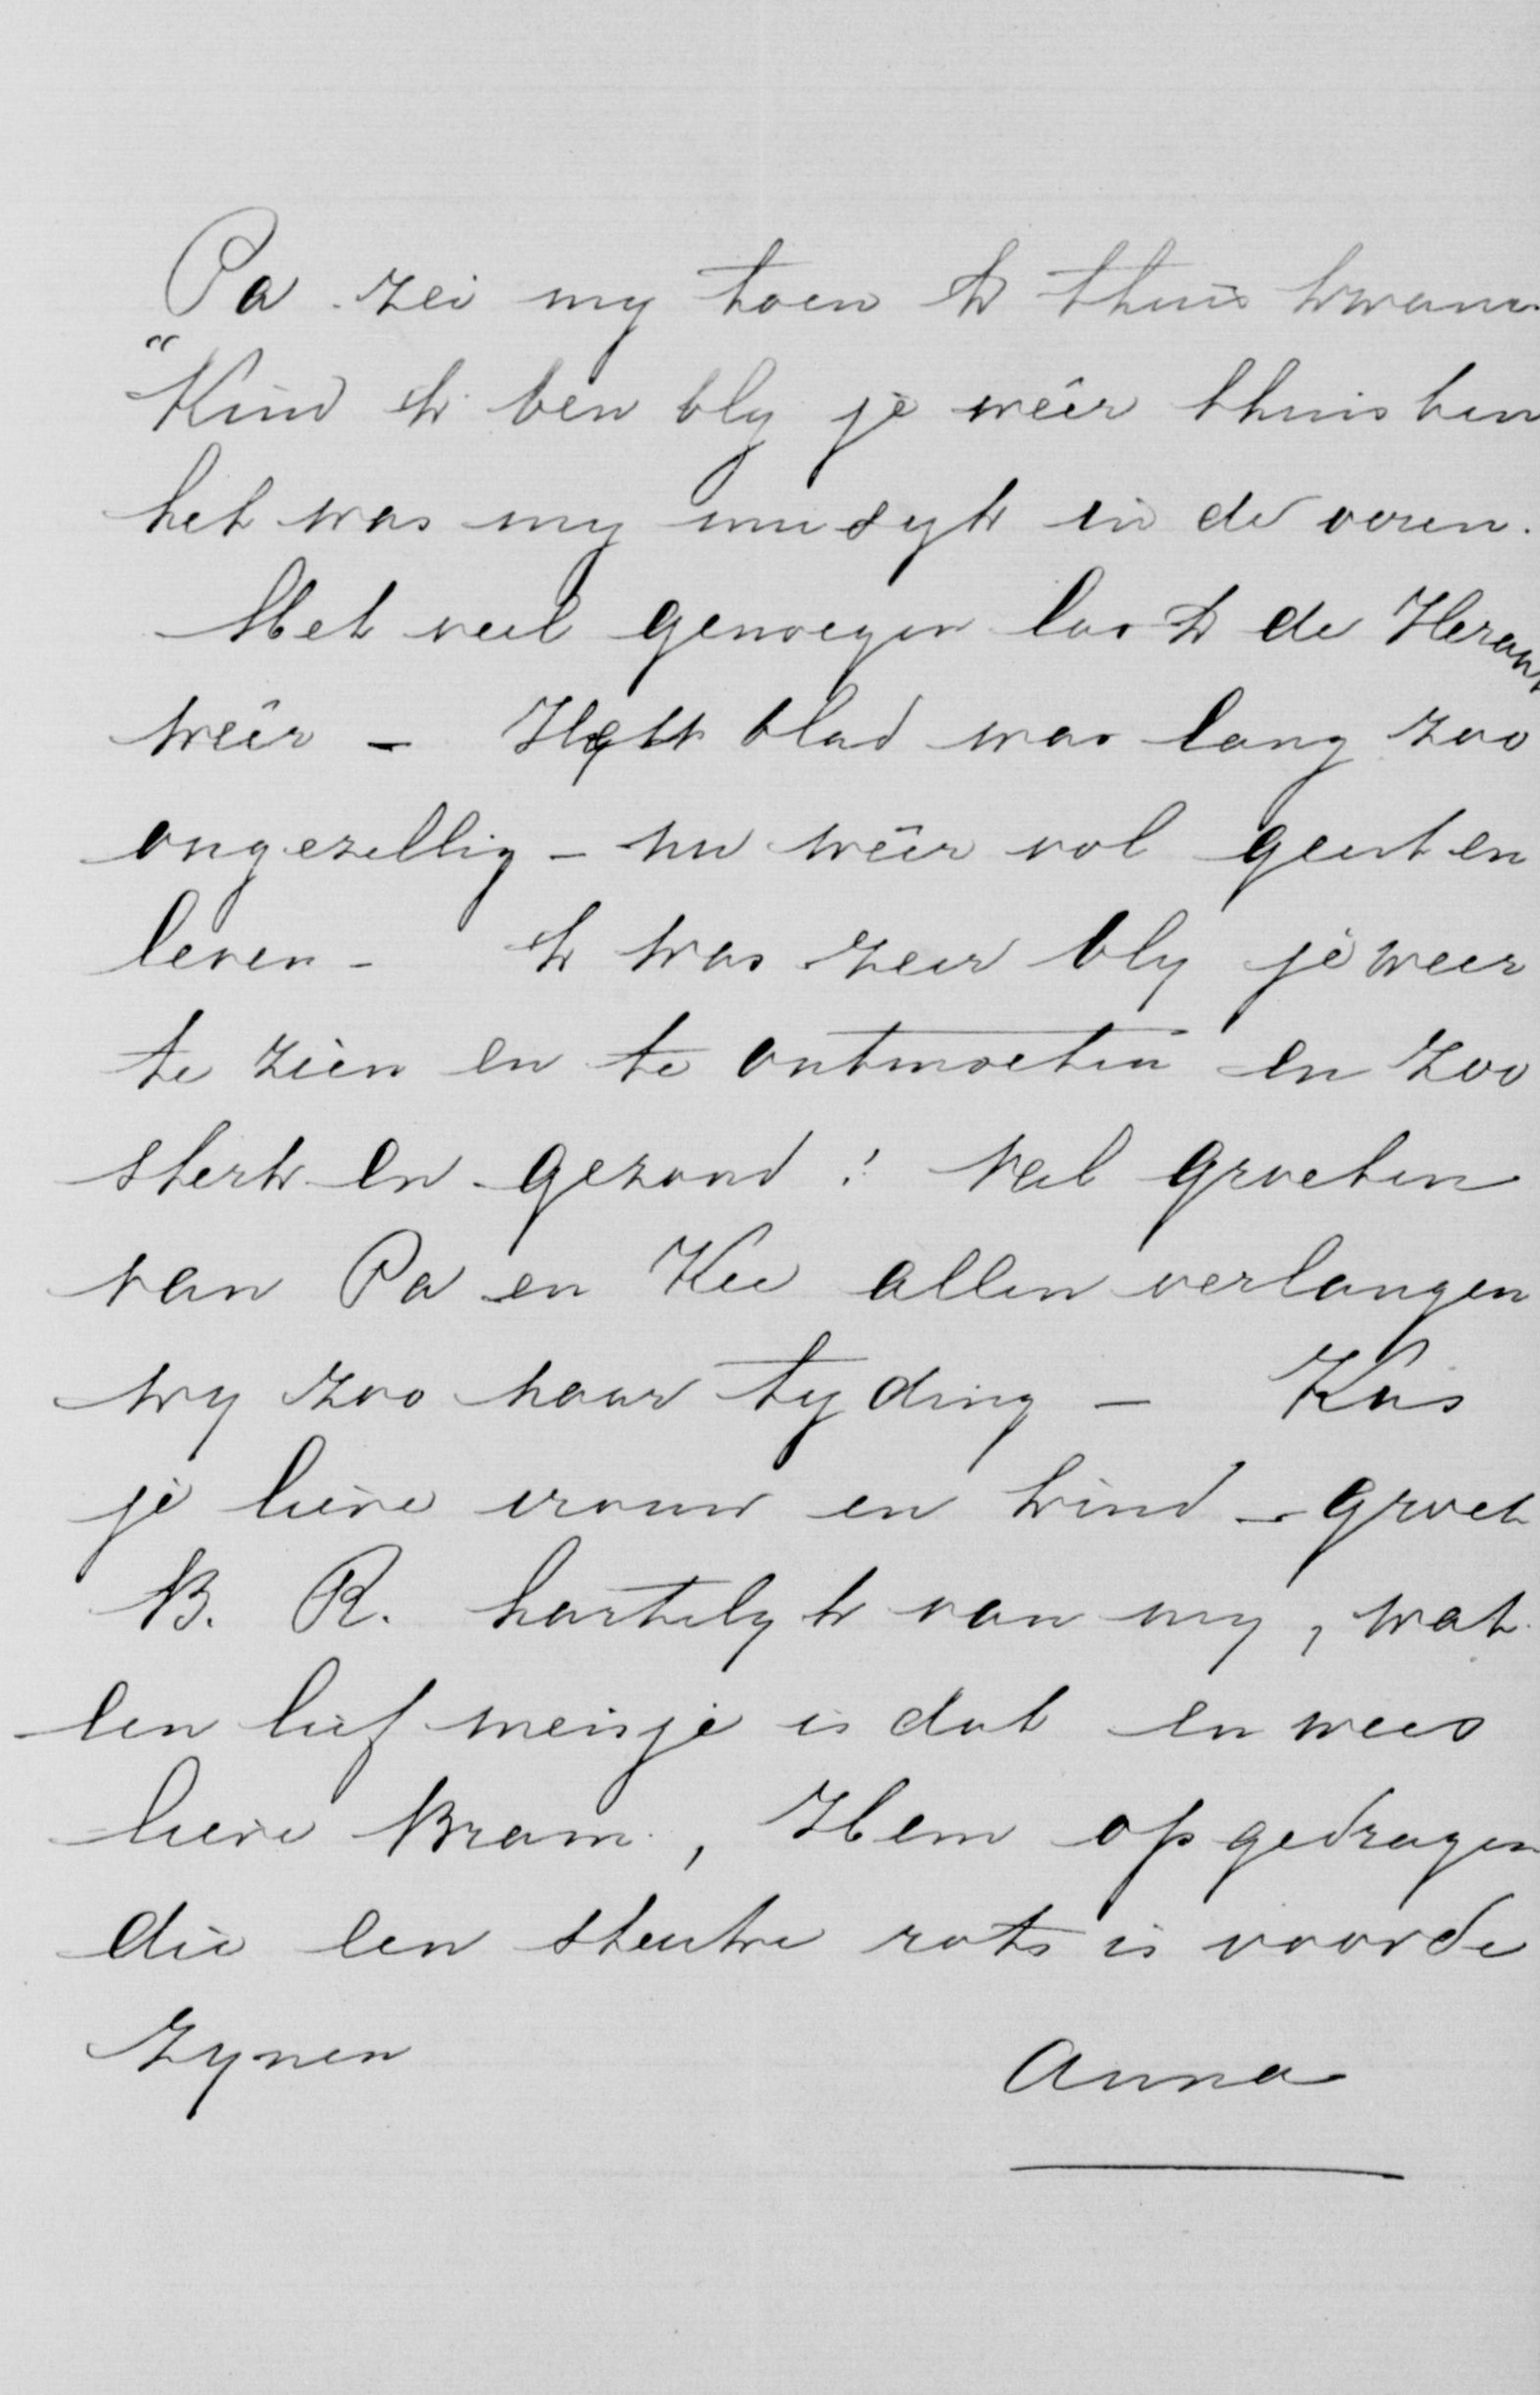 Pa zei my toen ik thuis kwam
"Kind ik ben bly je wêer thuis ben
het was my musyk in de ooren.
Met veel genoegen las ik de Heraut
wêer - Het blad was lang zoo
ongezellig - nu wêer vol geest en
leven - ik was zeer bly je weer
te zien en te ontmoeten en zoo
sterk en gezond! Veel groeten
van Pa en Kee allen verlangen
wy zoo naar tyding - Kus
je lieve vrouw en kind - groet
B. R. hartelyk van my, wat
een lief meisje is dat en wees
lieve Bram, Hem opgedragen
die een sterke rots is voor de
Zynen
Anna